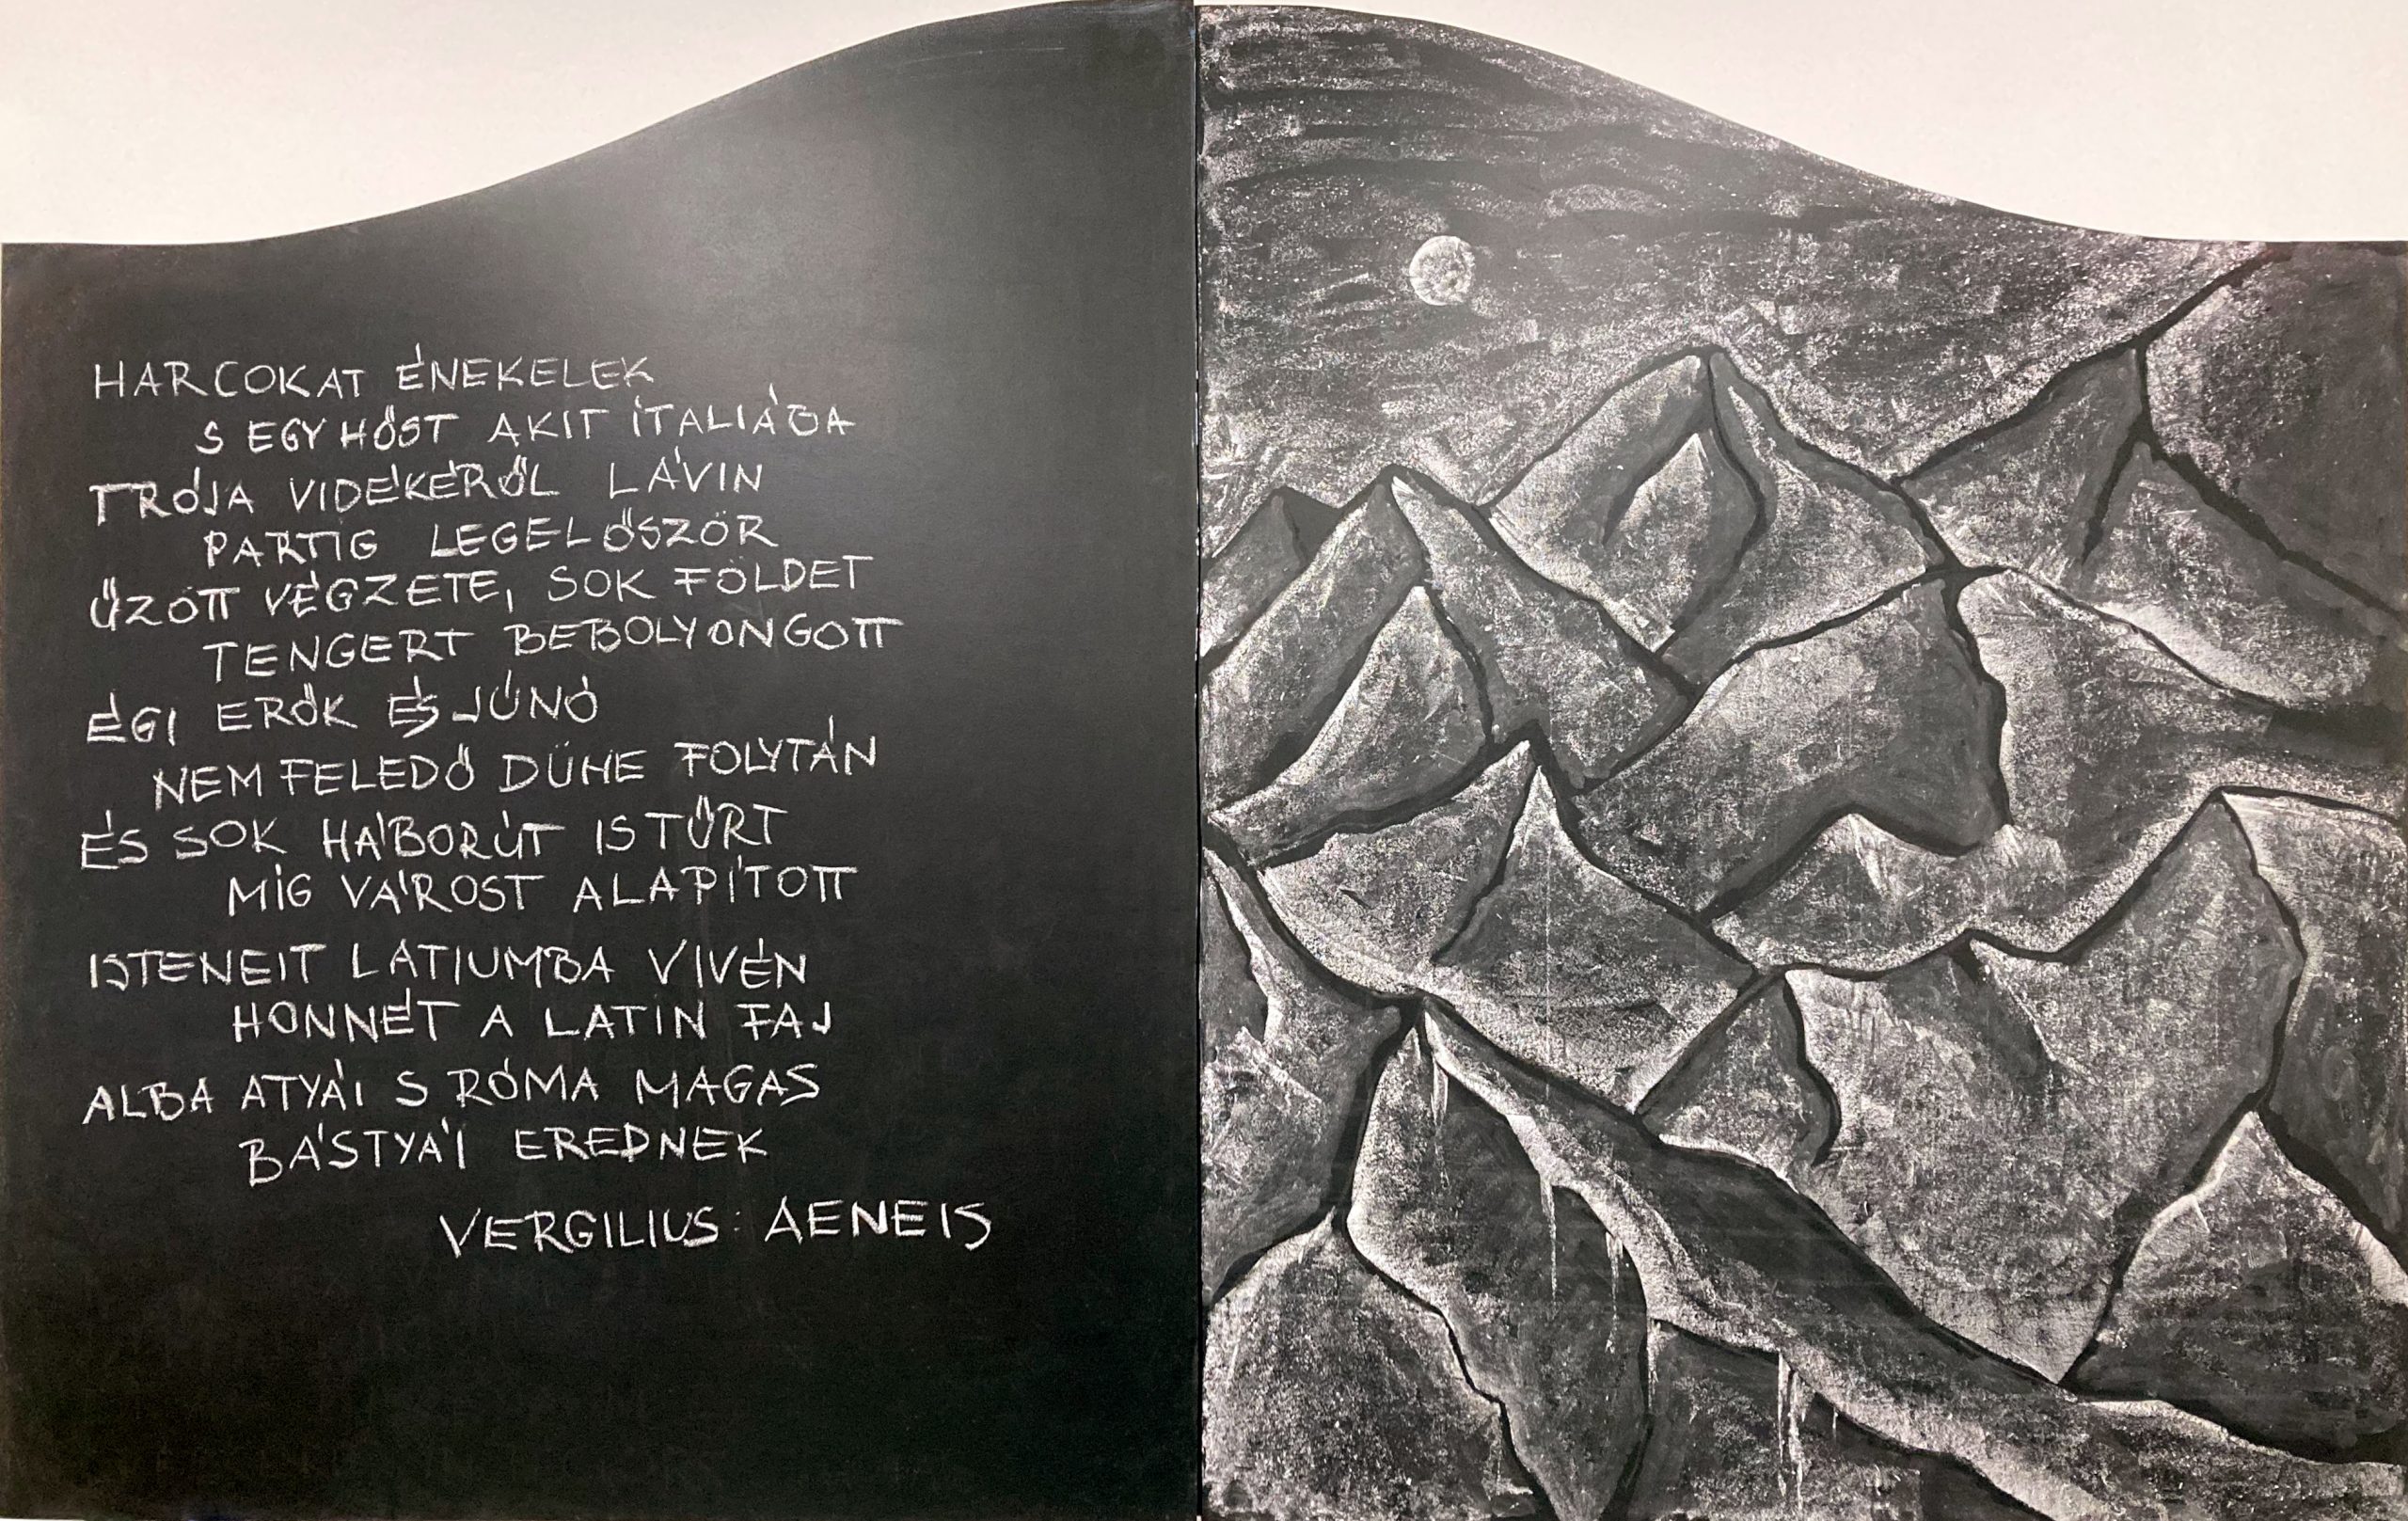 HARCOKAT ÉNEKELEK
S EGY HŐST AKIT ITÁLIÁBA
TRÓJA VIDÉKÉRŐL LÁVIN
PARTIG LEGELŐSZÖR
ŰZÖTT VÉGZETE, SOK FÖLDET
TENGERT BEBOLYONGOTT
ÉGI ERŐK ÉS JÚNÓ
NEM FELEDŐ DÜHE FOLYTÁN
ÉS SOK HÁBORÚT IS TŰRT
MIG VÁROST ALAPÍTOTT
ISTENEIT LATIUMBA VIVÉN
HONNÉT A LATIN FAJ
ALBA ATYÁI S RÓMA MAGAS
BÁSTYÁI EREDNEK
VERGILIUS: AENEIS